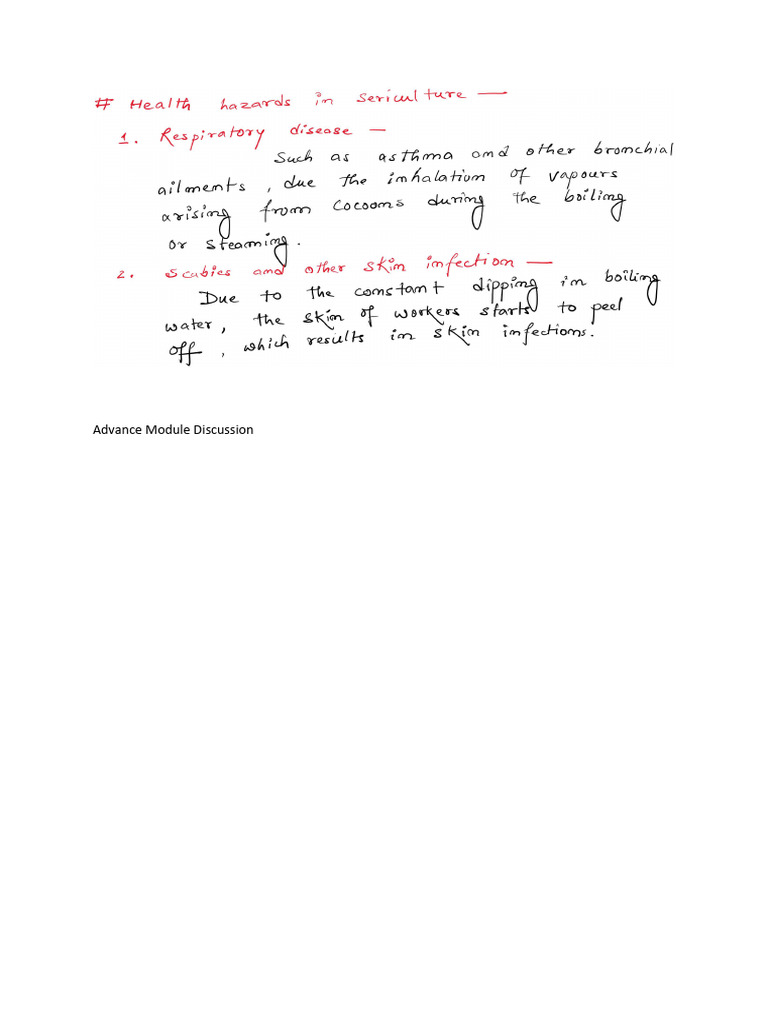 # Health hazards in sericulture —
1. Respiratory disease —
Such as asthma and other bronchial
ailments, due the inhalation of vapours
arising from cocoons during the boiling
or steaming.
2. Scabies and other skin infection —
Due to the constant dipping in boiling
water, the skin of workers starts to peel
off, which results in skin infections.
Advance Module Discussion